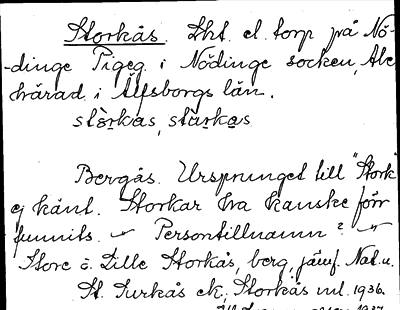 Storkås. Lht. el. torp på Nö-
-dinge Pigeg. i Nödinge socken, Ale
härad i Älfsborgs län.
stɔ̀rkas, stàrkas
Bergås. Ursprunget till "Stork"
ej känt. Storkar ha kanske förr
funnits. Persontillnamn?
Store o. Lille Storkås, berg, jämf. Nat. u.
St. Turkås ek., Storkås ml. 1936.